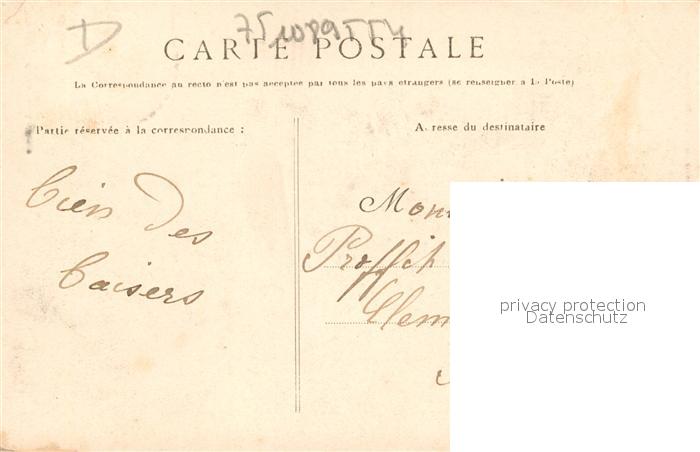 D
CARTE POSTALE
La Correspondance au recto n'est pas acceptée par tous les pays étrangers (se renseigner à la Poste)
Partie réservée à la correspondance :
Bien des
baisers
A resse du destinataire
Mon
Clem
privacy protection
Datenschutz